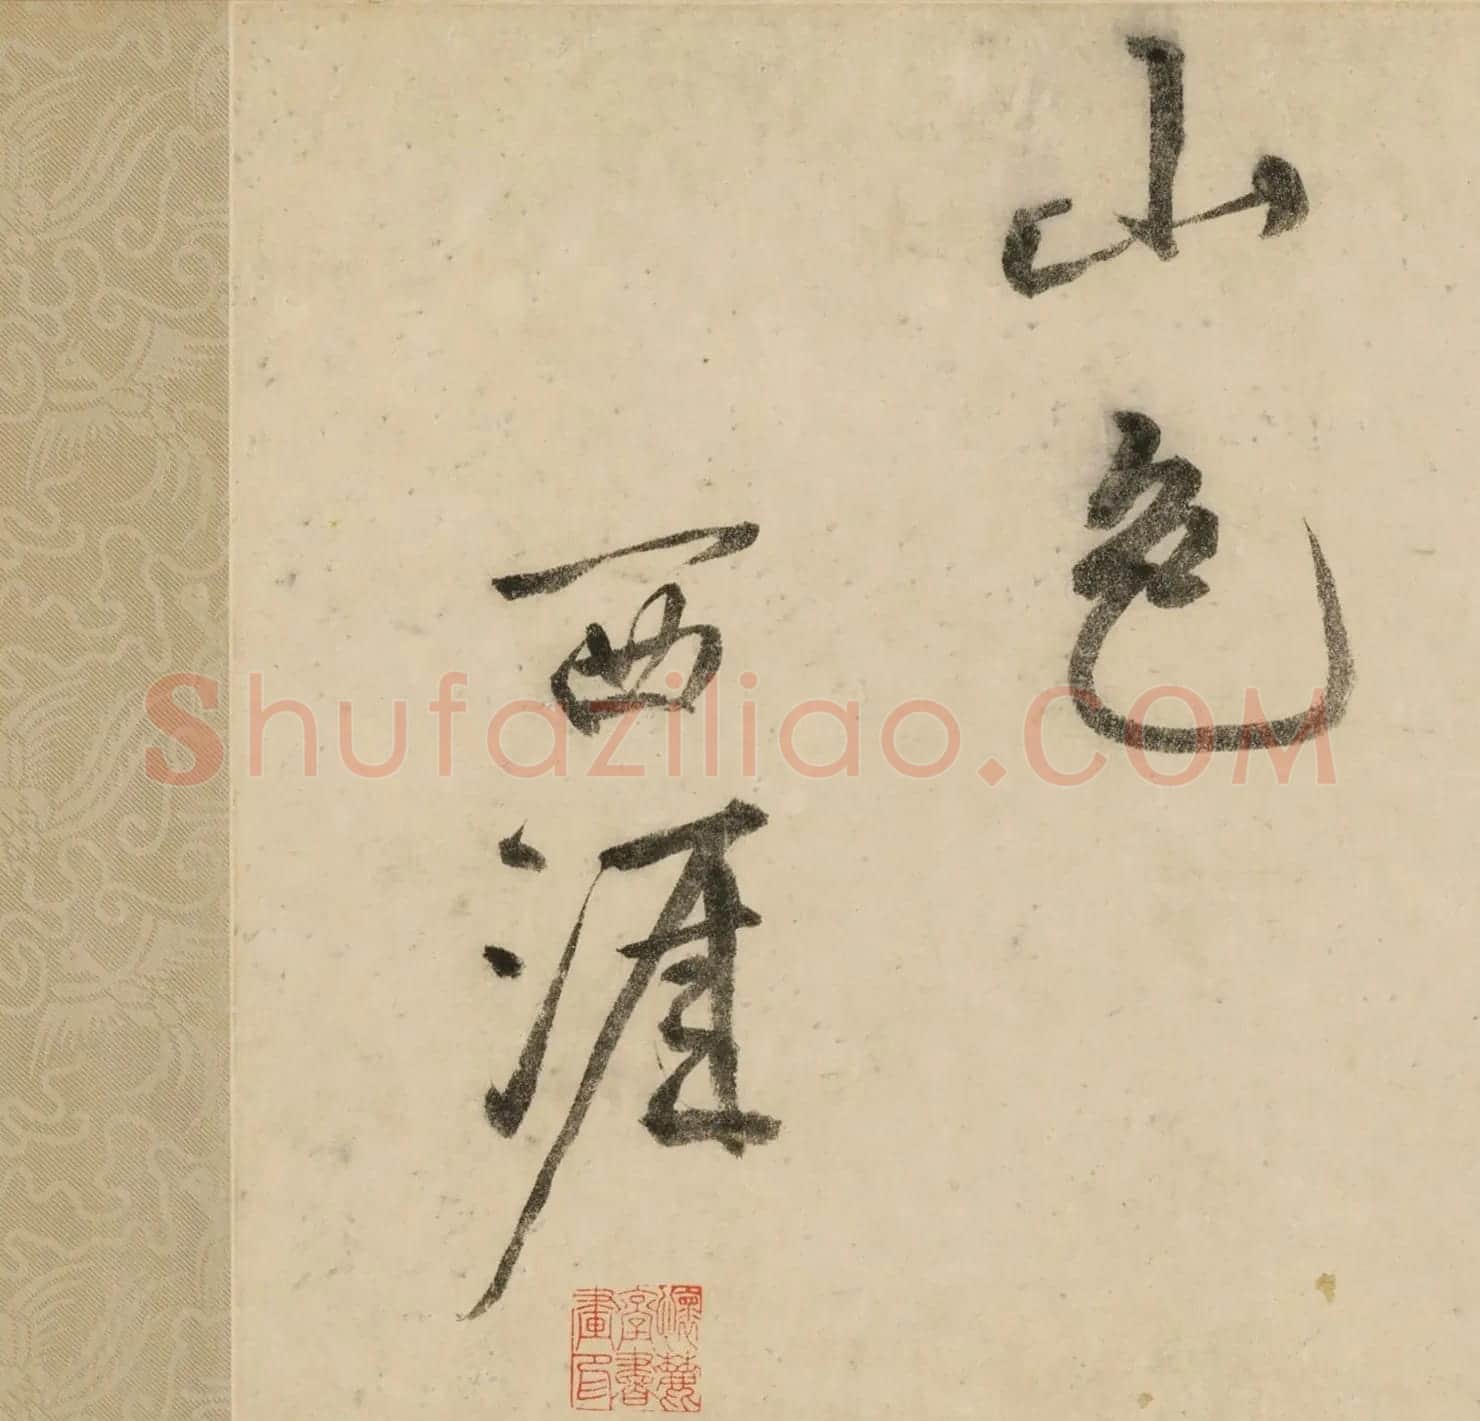 山色
西涯
Shufaziliao.COM